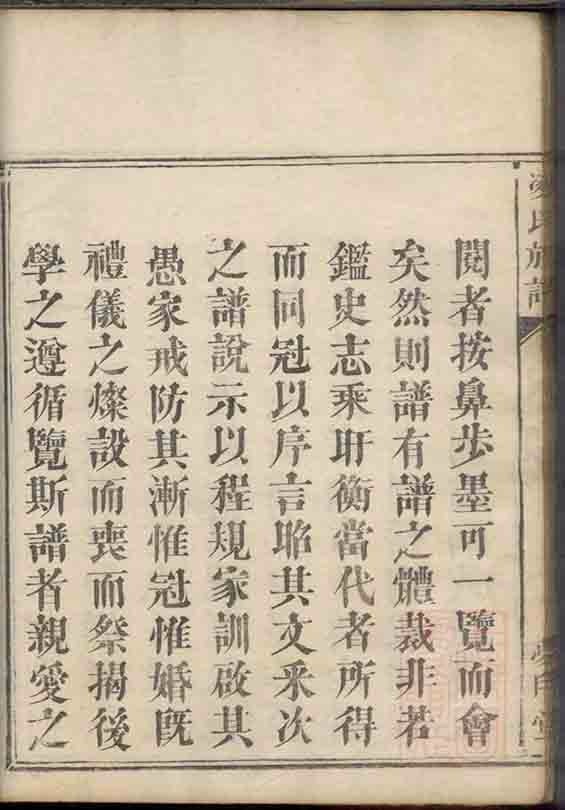 凌氏族譜
閱者按鼻步墨可一覽而會
矣然則譜有譜之體裁非若
鑑史志乘盱衡當代者所得
而同冠以序言昭其文釆次
之譜說示以程規家訓啟其
愚家戒防其漸惟冠惟婚旣
禮儀之燦設而喪而祭揭後
學之遵循覽斯譜者親愛之